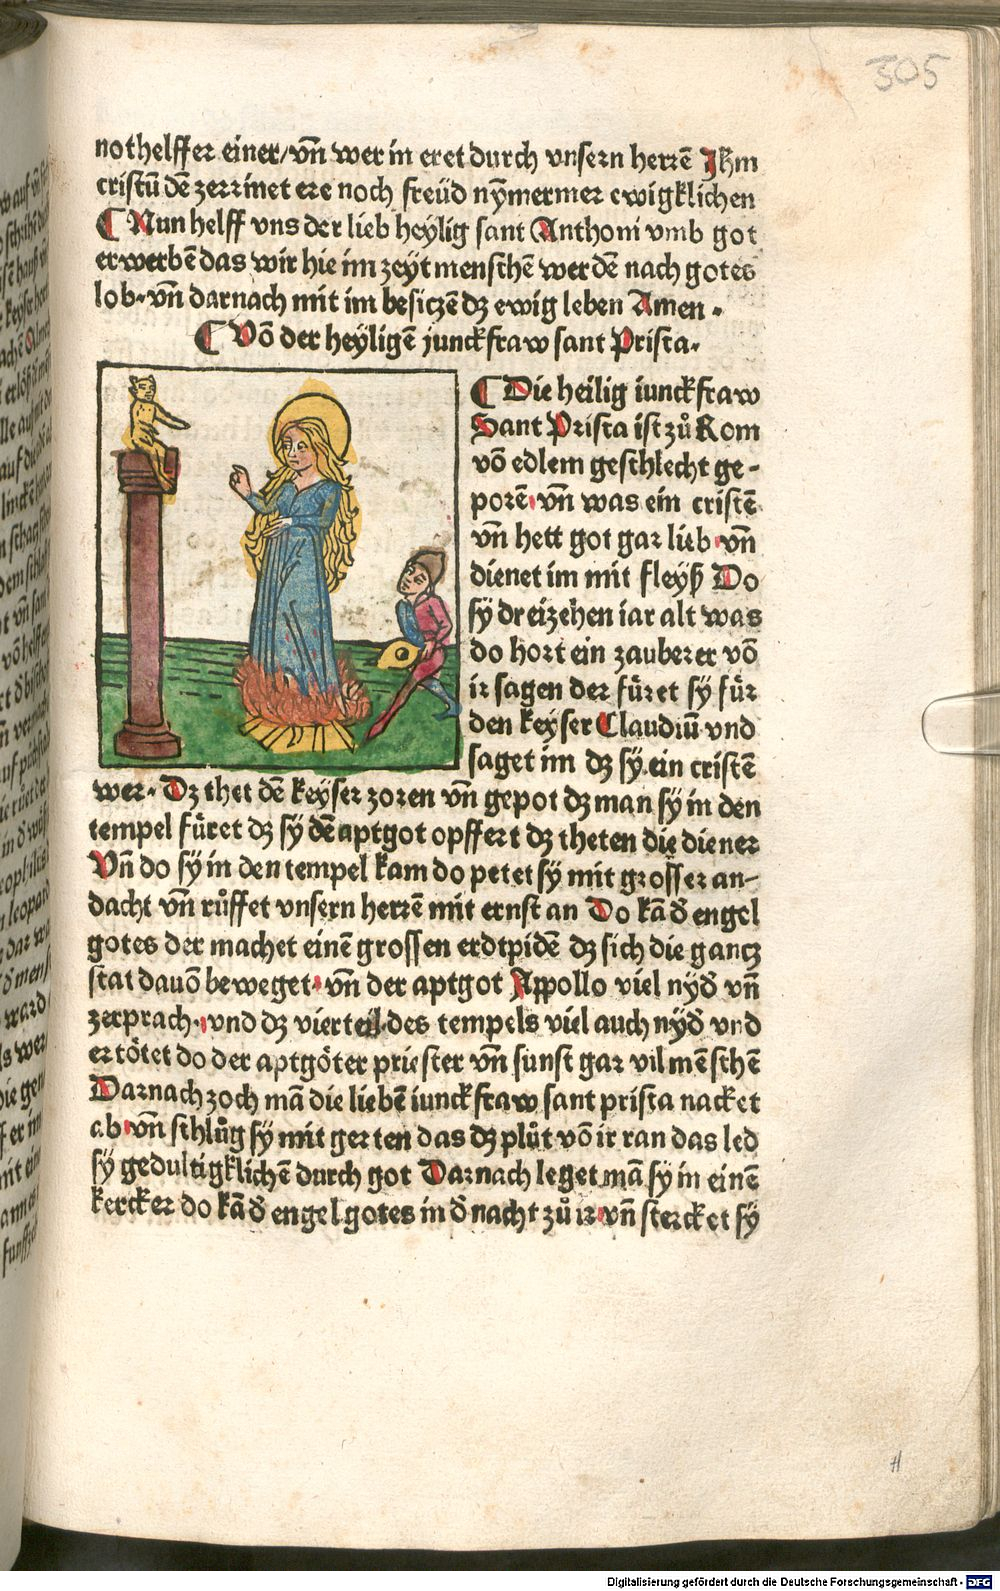 305
nothelffer einer/vn̄ wer in eret durch vnsern herrē Jhm
cristū dē zerrinet ere noch freüd nȳmermer ewigklichen
¶ Nun helff vns der lieb heylig sant Anthoni vmb got
erwerbē das wir hie im zeyt menschē werdē nach gotes
lob· vn̄ darnach mit im besiczē dz ewig leben Amen·
¶ Vō der heyligē junckfraw sant Prisca·
¶ Die heilig iunckfraw
Sant Prisca ist zů Rom
vō edlem geschlecht ge-
porē· vn̄ was ein cristē
vn̄ hett got gar lieb· vn̄
dienet im mit fleyß Do
sy dreizehen iar alt was
do hort ein zauberer vō
ir sagen der füret sy für
den keyser Claudiū· vnd
saget im dz sy ein cristē
wer· Dz thet dē keyser zoren vn̄ gepot dz man sy in den
tempel füret dz sy dē aptgot opffert dz theten die diener
Vn̄ do sy in den tempel kam do petet sy mit grosser an-
dacht vn̄ růffet vnsern herrē mit ernst an Do kā đ engel
gotes der machet einē grossen erdtpidē dz sich die gancz
stat dauō beweget· vn̄ der aptgot Appollo viel nyđ vn̄
zerprach· vnd dz vierteil des tempels viel auch nyđ vnd
ertötet do der aptgöter priester vn̄ sunst gar vil mēschē
Darnach zoch mā die liebē iunckfraw sant prisca nacket
ab· vn̄ schlůg sy mit gerten das dz plůt vō ir ran das led
sy gedultigklichē durch got Darnach leget mā sy in einē
kercker do kā đ engel gotes in đ nacht zů ir· vn̄ stercket sy
Digitalisierung gefördert durch die Deutsche Forschungsgemeinschaft - DFG